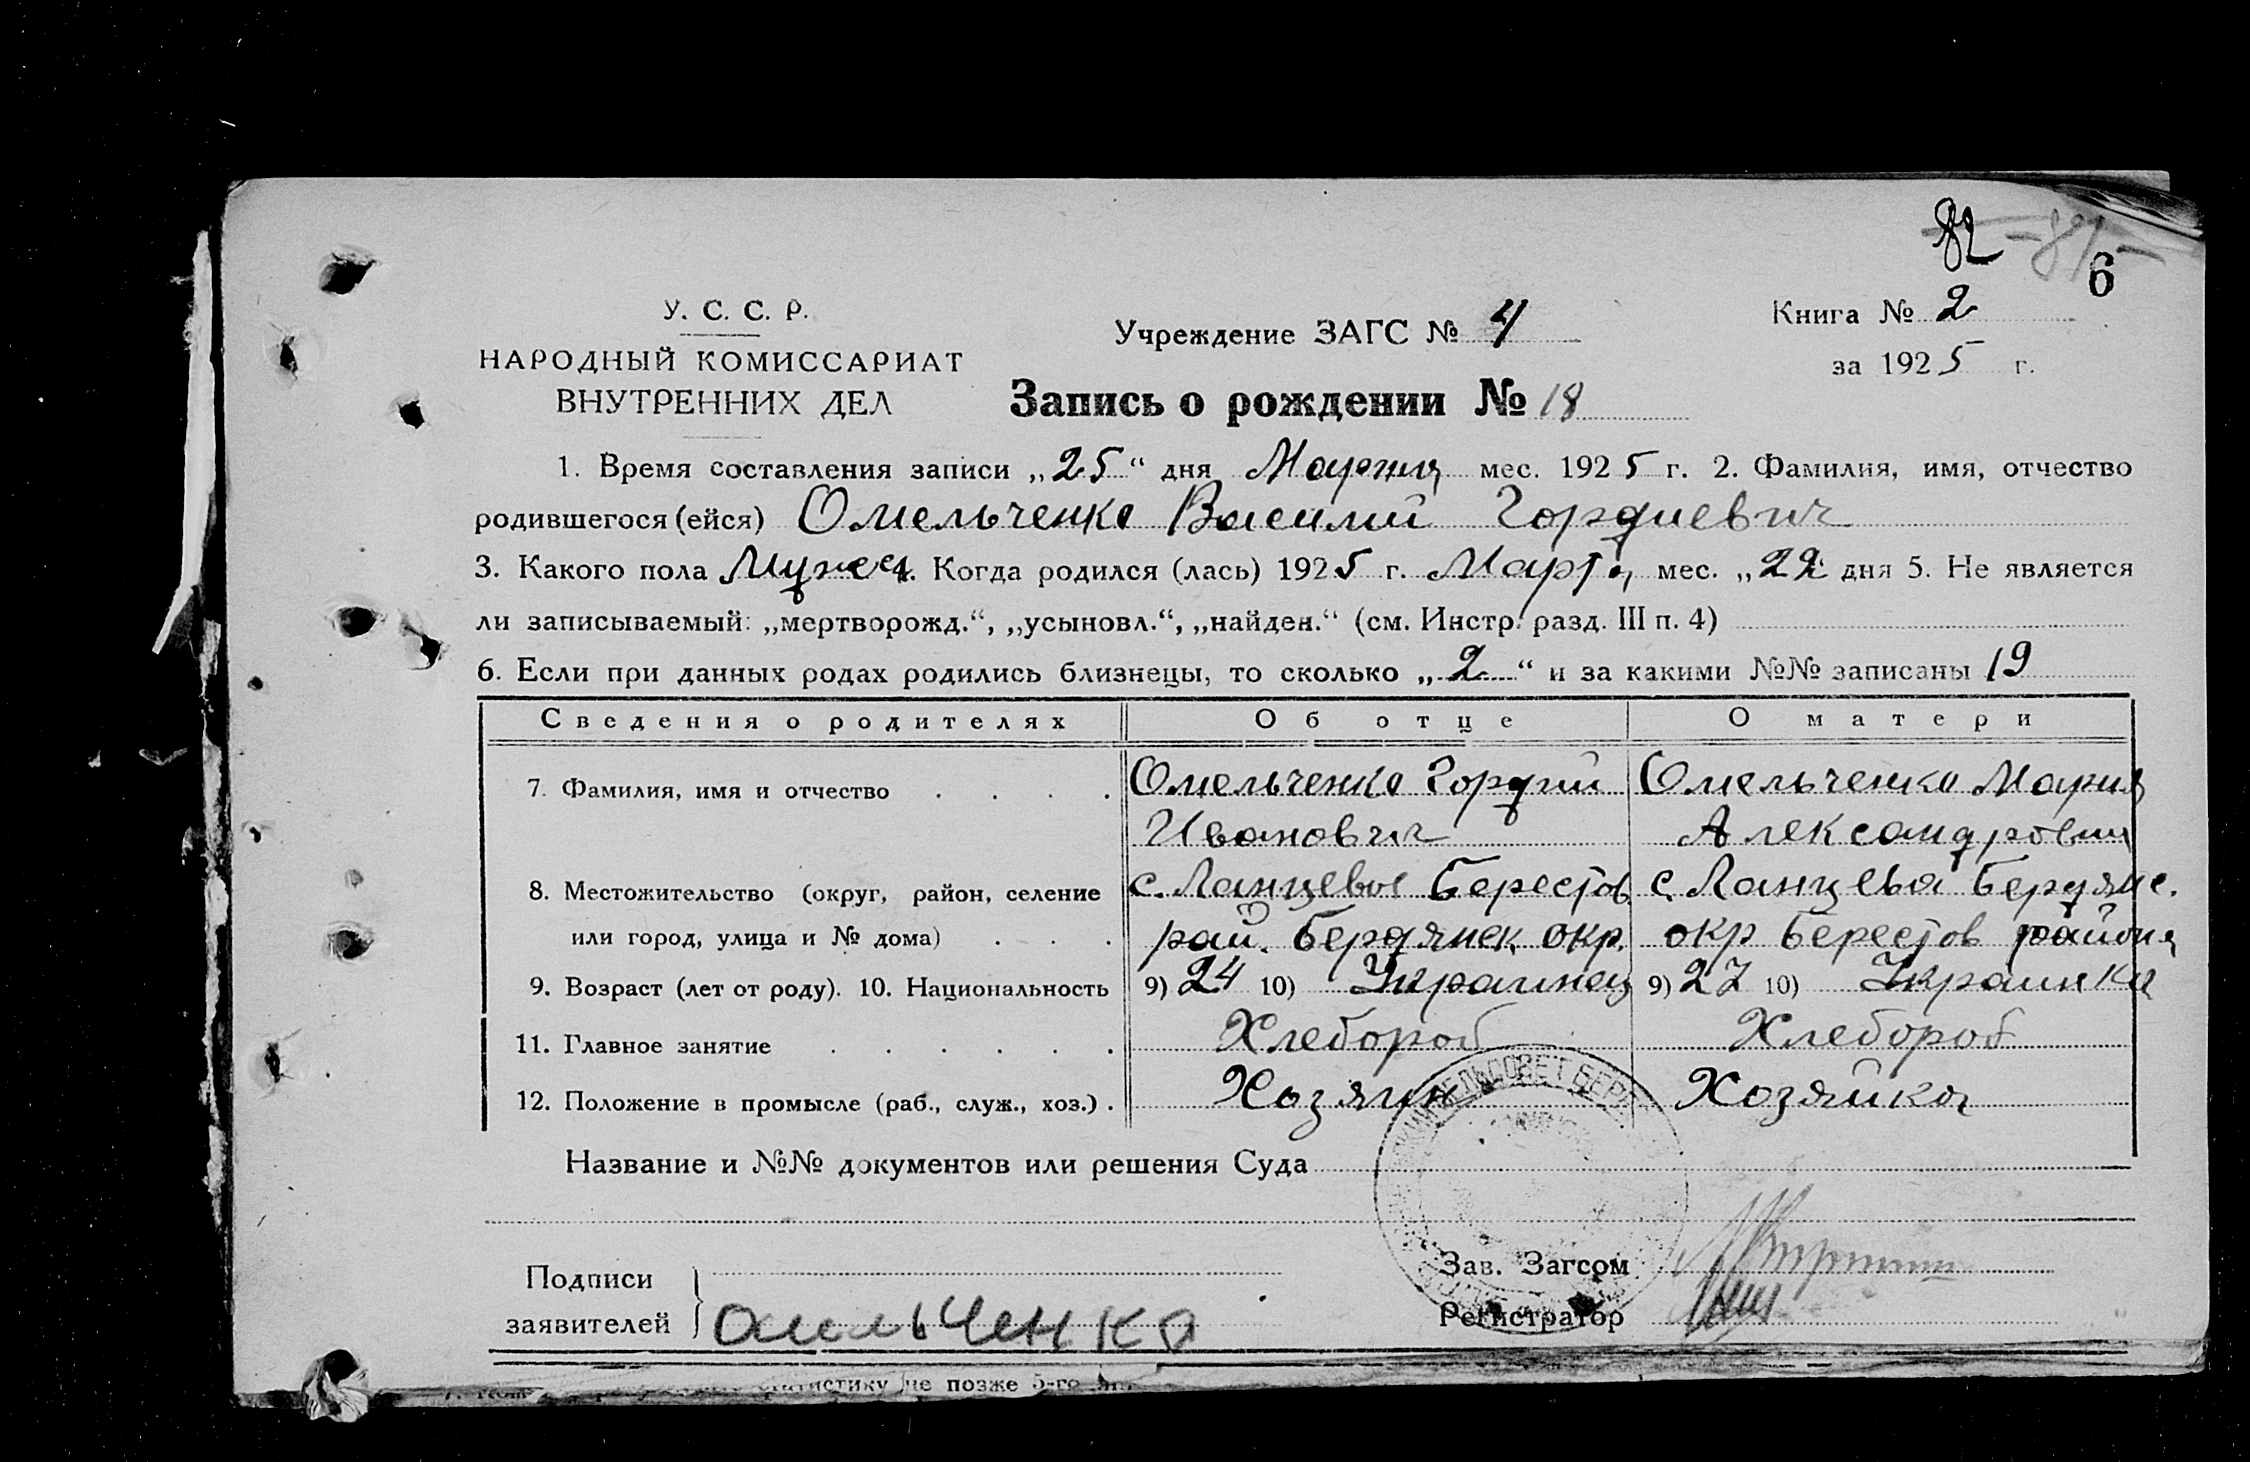 82 -81-
6
У. С. С. Р.
НАРОДНЫЙ КОМИССАРИАТ
ВНУТРЕННИХ ДЕЛ
Учреждение ЗАГС № 4
Книга № 2
за 1925 г.
Запись о рождении № 18
1. Время составления записи „25“ дня Марта мес. 1925 г. 2. Фамилия, имя, отчество
родившегося (ейся) Омельченко Василий Гордиевич
3. Какого пола Мужс 4. Когда родился (лась) 1925 г. Марта мес. „22 дня 5. Не является
ли записываемый: „мертворожд.“, „усыновл.“, „найден.“ (см. Инстр. разд. III п. 4)
6. Если при данных родах родились близнецы, то сколько „2“ и за какими №№ записаны 19
Сведения о родителях Об отце О матери
7. Фамилия, имя и отчество . . . . Омельченко Гордий Омельченко Мария
Иванович Александровна
8. Местожительство (округ, район, селение с. Ланцевое Берестов с. Ланцевая Бердянс.
или город, улица и № дома) . . . рай. Бердянск окр. окр Берестов района
9. Возраст (лет от роду). 10. Национальность 9) 24 10) Украинец 9) 27 10) Украинка
11. Главное занятие . . . . . . Хлебороб Хлебороб
12. Положение в промысле (раб., служ., хоз.) . Хозяин Хозяйка
Название и №№ документов или решения Суда
Подписи
заявителей
Омильченко
Зав. Загсом
Регистратор
статистику не позже 5-го